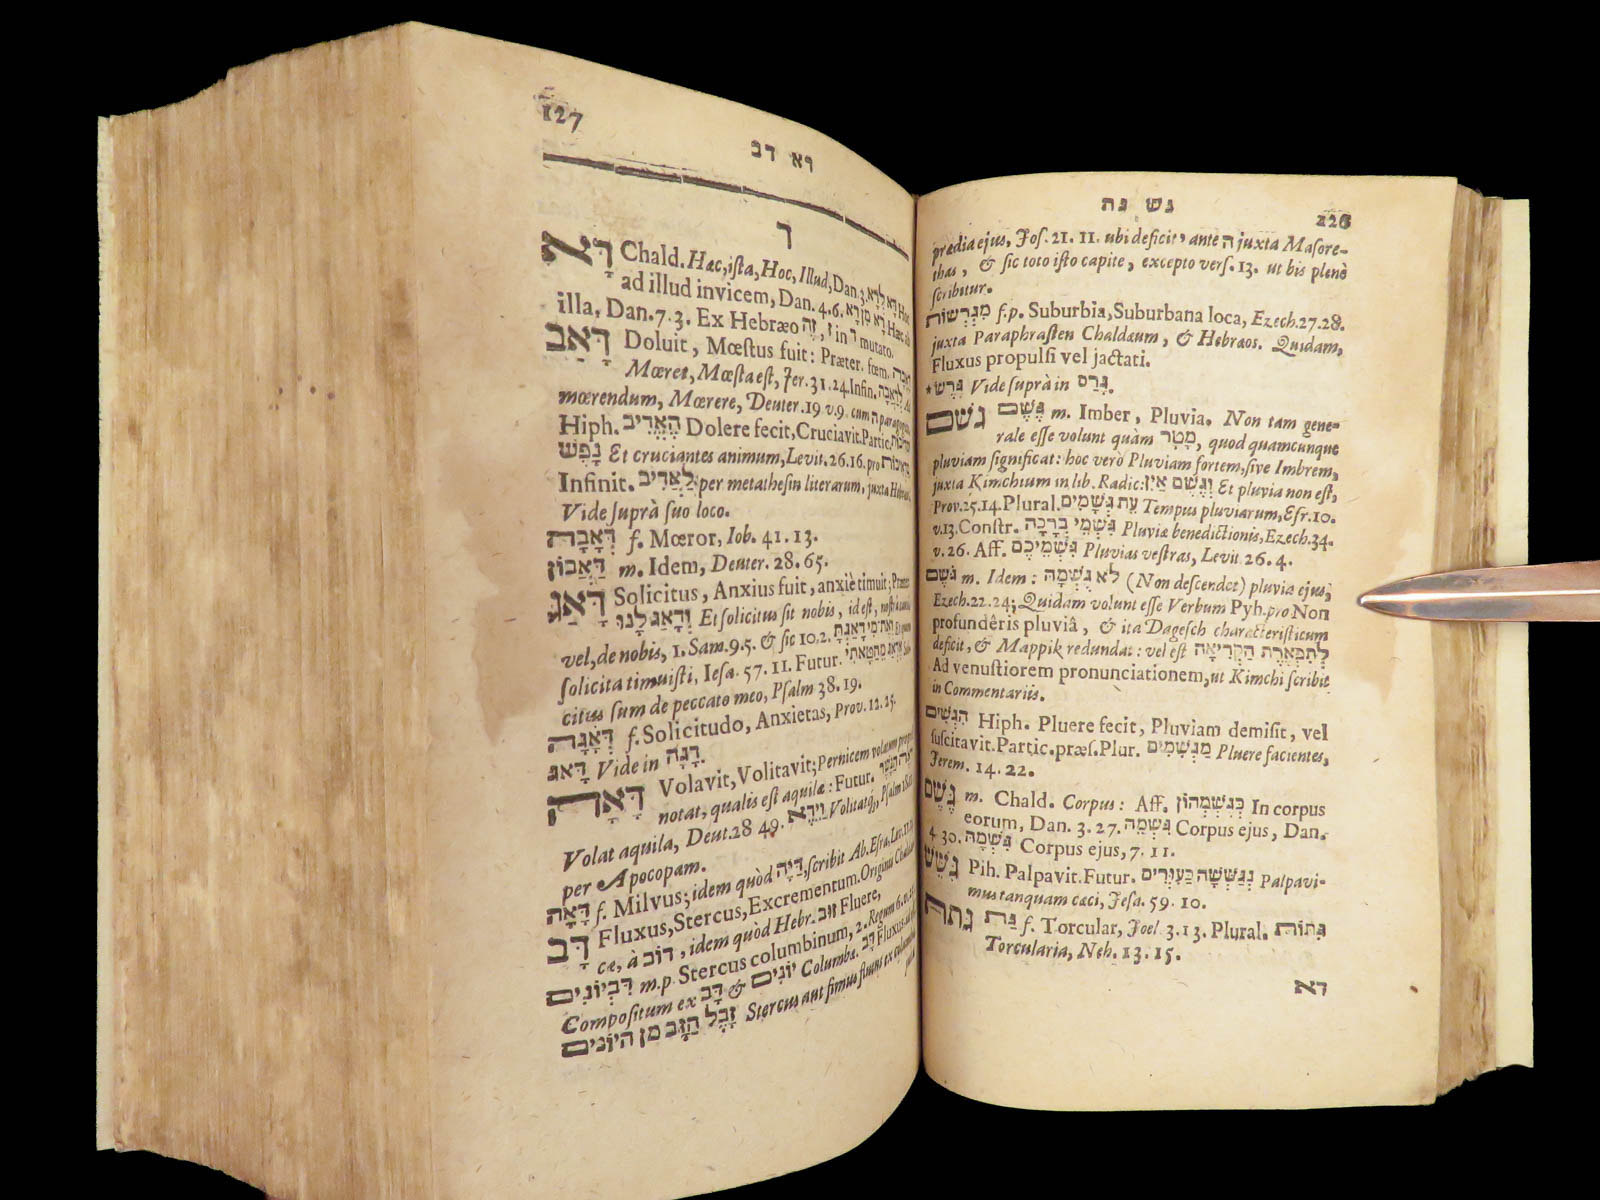 גש גת
126
prædia ejus, Jos. 21. 11. ubi deficit י ante ה juxta Masore-
thas, & sic toto isto capite, excepto vers. 13. ut bis plenè
scribitur.
מִגְרְשׁוֹת f.p. Suburbia, Suburbana loca, Ezech. 27. 28.
juxta Paraphrasten Chaldæum, & Hebræos. Quidam,
Fluxus propulsi vel jactati.
Vide suprà in גָּרַס.
גשׁם גֶּשֶׁם m. Imber, Pluvia. Non tam gene-
rale esse volunt quàm מָטָר, quod quamcunque
pluviam significat: hoc verò Pluviam fortem, sive Imbrem,
juxta Kimchium in lib. Radic: וְגֶשֶׁם אָיִן Et pluvia non est,
Prov. 25. 14. Plural. עֵת גְּשָׁמִים Tempus pluviarum, Esr. 10.
v. 13. Constr. גִּשְׁמֵי בְרָכָה Pluviæ benedictionis, Ezech. 34.
v. 26. Aff. גִּשְׁמֵיכֶם Pluvias vestras, Levit 26. 4.
גֹּשֶׁם m. Idem: לֹא גֻשְׁמָהּ (Non descendet) pluvia ejus,
Ezech. 22. 24; Quidam volunt esse Verbum Pyh. pro Non
profunderis pluviâ, & ita Dagesch characteristicum
deficit, & Mappik redundat: vel est לְתִפְאֶרֶת הַקְּרִיאָה
Ad venustiorem pronunciationem, ut Kimchi scribit
in Commentariis.
הִגְשִׁים Hiph. Pluere fecit, Pluviam demisit, vel
suscitavit. Partic. præs. Plur. מַגְשִׁמִים Pluere facientes,
Jerem. 14. 22.
גֶּשֶׁם m. Chald. Corpus: Aff. גִּשְׁמְהוֹן In corpus
eorum, Dan. 3. 27. גִּשְׁמֵהּ Corpus ejus, Dan.
4. 30. גִּשְׁמָהּ Corpus ejus, 7. 11.
גִּשֵּׁשׁ Pih. Palpavit. Futur. נְגַשְׁשָׁה כַעִוְרִים Palpavi-
mus tanquam cæci, Jesa. 59. 10.
גתת גַּת f. Torcular, Joel 3. 13. Plural. גִּתּוֹת
Torcularia, Neh. 13. 15.
דא
127
דא דב
ד
דָּא Chald. Hæc, ista, Hoc, Illud, Dan. 3. דָּא לְדָא
ad illud invicem, Dan. 4. 6. דָּא מִן דָּא Hæc ab
illa, Dan. 7. 3. Ex Hebræo זֶה, ז in ד mutato.
דָּאַב Doluit, Mœstus fuit: Præter. fœm. דָּאֲבָה
Mœret, Mœsta est, Jer. 31. 24. Infin. לְדַאֲבָה
mœrendum, Mœrere, Deuter. 19 v. 9. cum ה
Hiph. הֶאֱדִיב Dolere fecit, Cruciavit. Partic.
נֶפֶשׁ Et cruciantes animum, Levit. 26. 16. pro
Infinit. לַאֲדִיב per metathesin literarum, juxta
Vide suprà suo loco.
דְּאָבָה f. Mœror, Iob. 41. 13.
דַּאֲבוֹן m. Idem, Deuter. 28. 65.
דָּאַג Solicitus, Anxius fuit, anxiè timuit;
וְדָאַג לָנוּ Et solicitus sit nobis, id est,
vel, de nobis, 1. Sam. 9. 5. & sic 10. 2.
solicita timuisti, Iesa. 57. 11. Futur. אֶדְאַג מֵחַטָּאתִי
citus sum de peccato meo, Psalm 38. 19.
דְּאָגָה f. Solicitudo, Anxietas, Prov. 12. 25.
דָּאג Vide in דָּגָה.
דָּאָה Volavit, Volitavit; Pernicem volatum
notat, qualis est aquilæ: Futur.
Volat aquila, Deut. 28 49. וַיֵּדֶא Volitatq;, Psalm
per Apocopam.
דָּאָה f. Milvus; idem quòd דַּיָּה, scribit Ab. Esra, Lev.
דָּב Fluxus, Stercus, Excrementum. Origine
cæ, à דוֹב, idem quòd Hebr. זוּב Fluere,
דִּבְיוֹנִים m.p Stercus columbinum, 2. Regum 6.
Compositum ex דָּב & יוֹנִים Columbæ.
זֶבֶל הַזָּב מִן הַיּוֹנִים Stercus aut fimus fluens ex